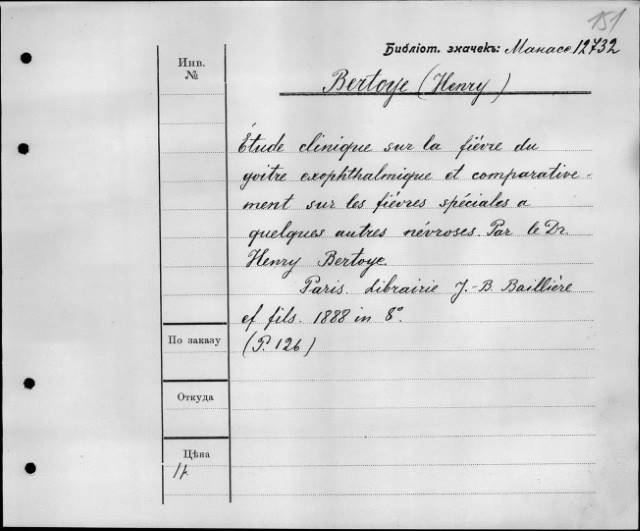 151
Библіот. значекъ: Манасе 12732
Инв.
№
Bertoye (Henry)
Étude clinique sur la fièvre du
goitre exophthalmique et comparative-
ment sur les fièvres spéciales a
quelques autres névroses. Par le Dr.
Henry Bertoye.
Paris. Librairie J.-B. Baillière
et fils. 1888 in 8°.
По заказу
(P. 126)
Откуда
Цѣна